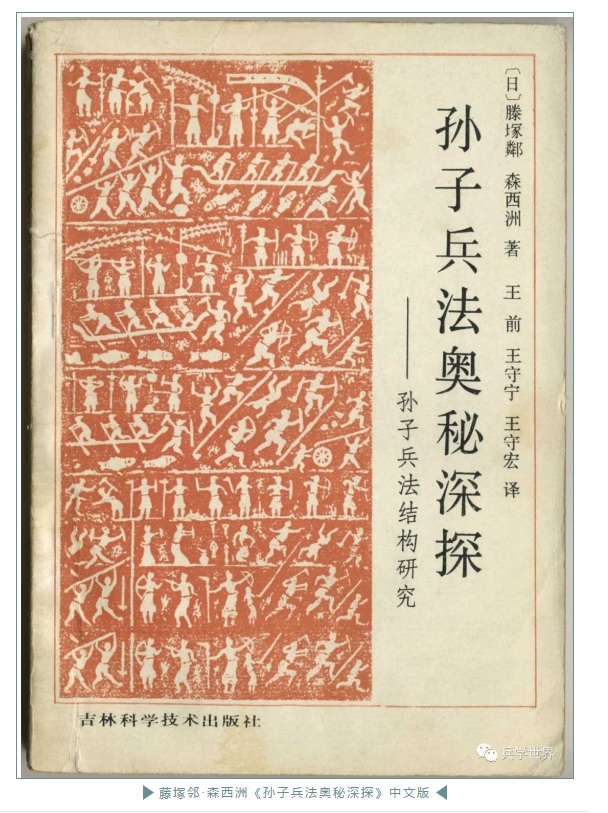 〔日〕滕塚鄰 森西洲 著 王前 王守宁 王守宏 译
孙子兵法奥秘深探
——孙子兵法结构研究
吉林科学技术出版社
兵学世界
▶ 藤塚邻·森西洲《孙子兵法奥秘深探》中文版 ◀